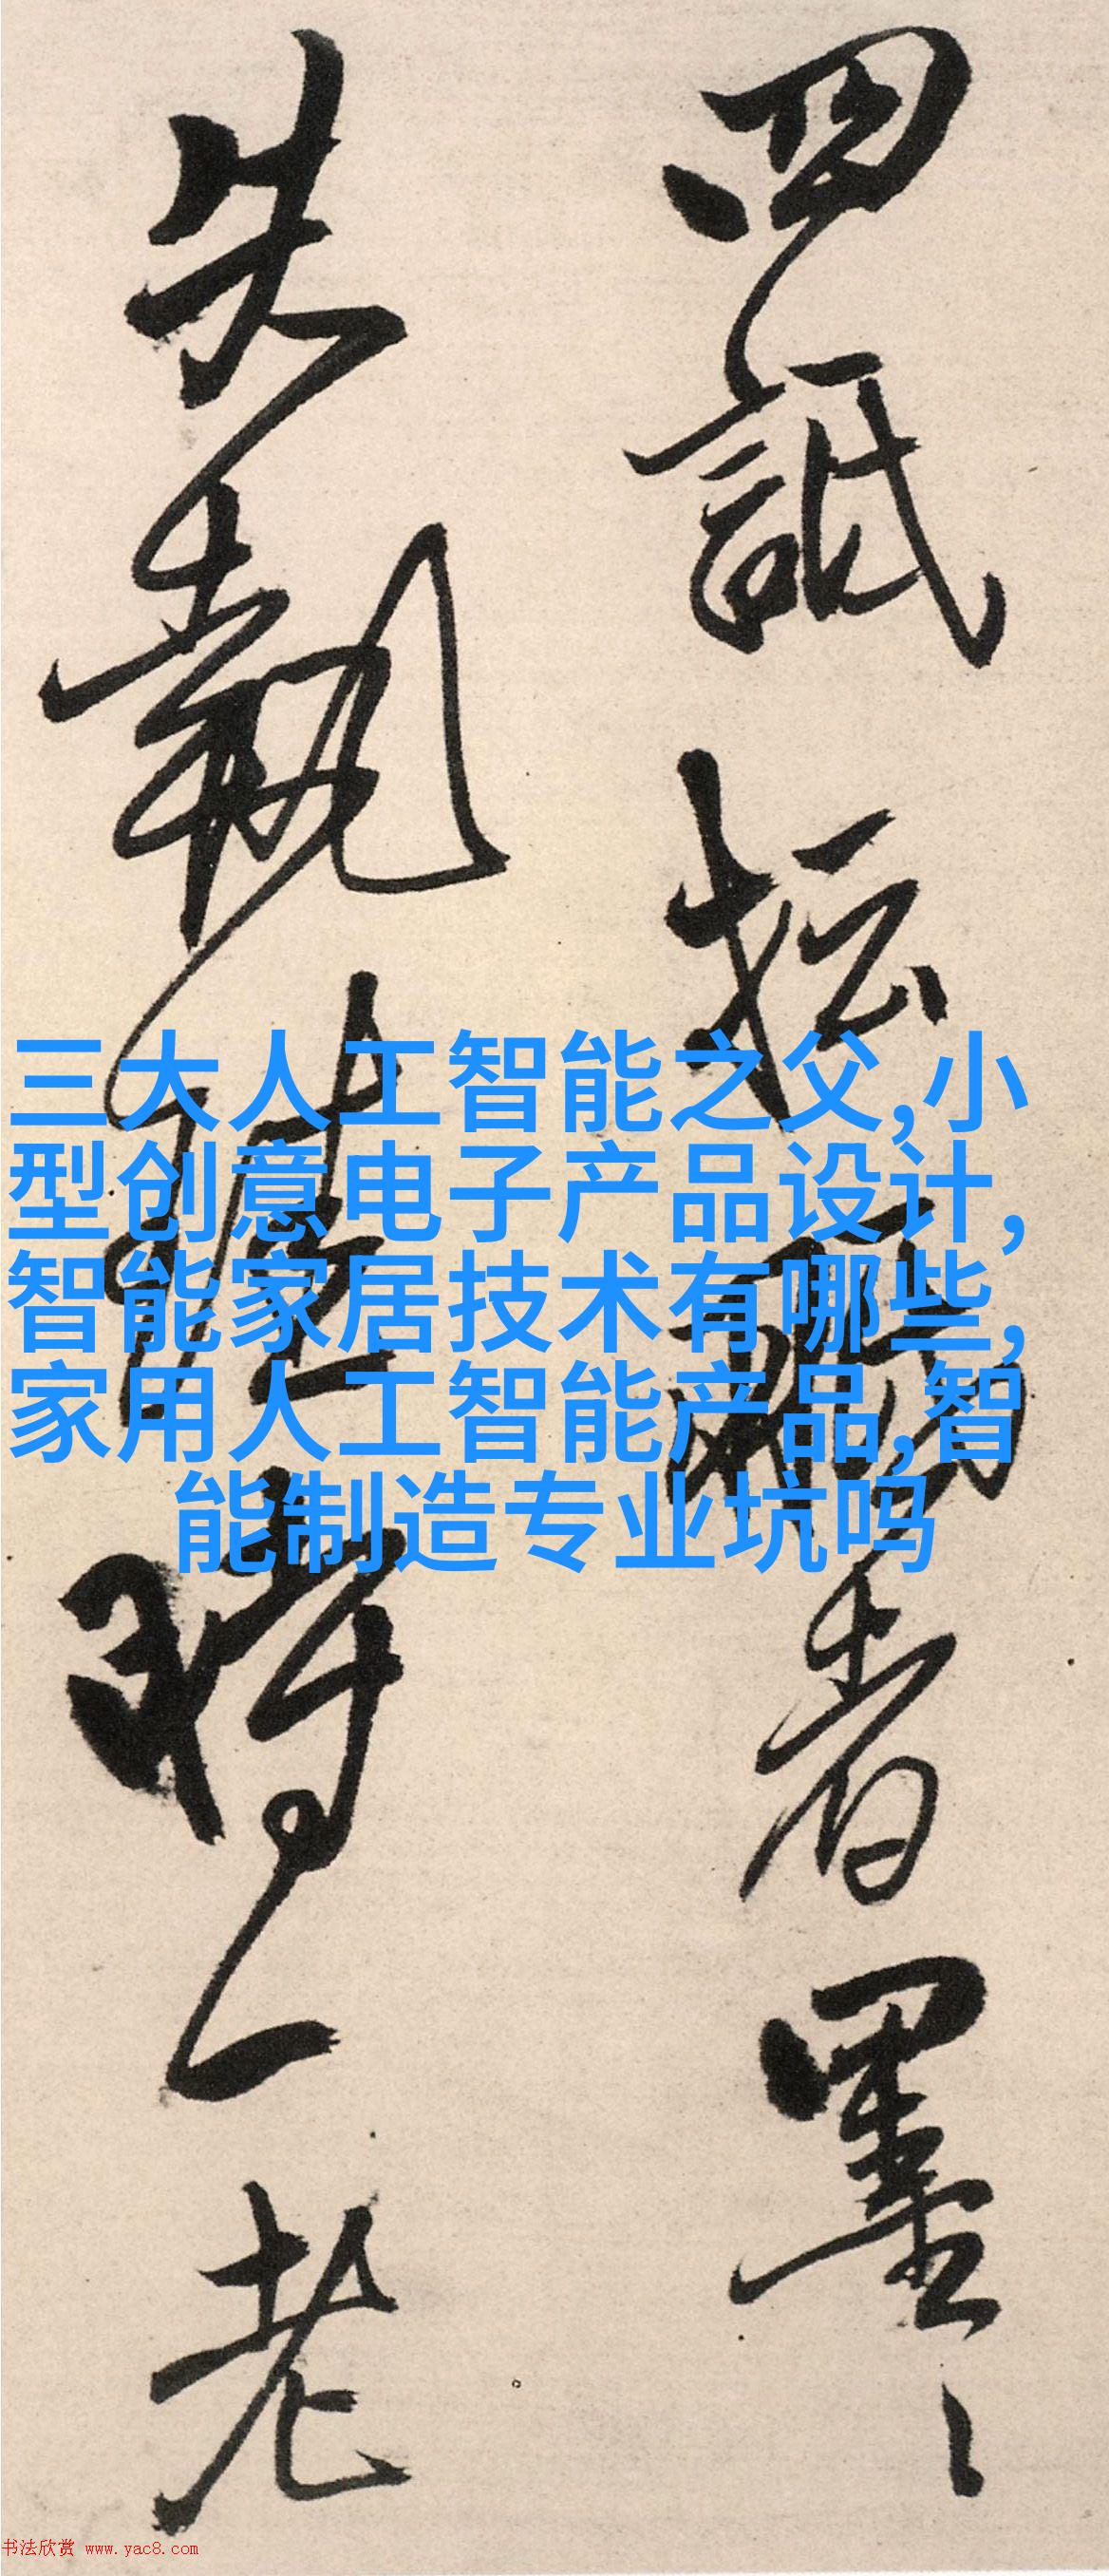 四詆抎
者墨
失執
時一老
三大人工智能之父,小
型创意电子产品设计,
智能家居技术有哪些,
家用人工智能产品,智
能制造专业坑吗
书法欣赏 www.yac8.com